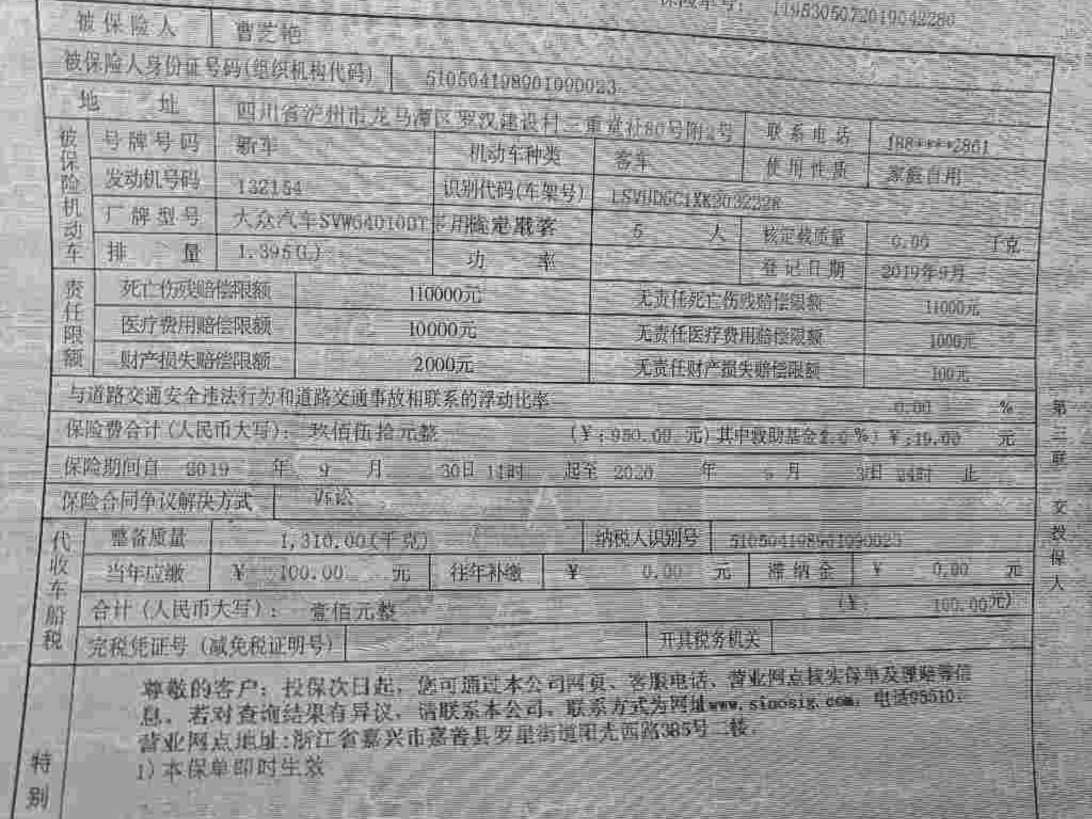 保险单号: 1195305072019042280
被保险人 曹芝艳
被保险人身份证号码(组织机构代码) 510504198901090023
地址 四川省泸州市龙马潭区罗汉建设村三重堂社80号附2号 联系电话 188****2861
被保险机动车 号牌号码 新车 机动车种类 客车 使用性质 家庭自用
发动机号码 132154 识别代码(车架号)
厂牌型号 大众汽车 5 人 核定载质量 0.00 千克
排量 1.395(L) 功率 登记日期 2019年9月
责任限额 死亡伤残赔偿限额 110000元 无责任死亡伤残赔偿限额 11000元
医疗费用赔偿限额 10000元 无责任医疗费用赔偿限额 1000元
财产损失赔偿限额 2000元 无责任财产损失赔偿限额 100元
与道路交通安全违法行为和道路交通事故相联系的浮动比率 0.00 %
保险费合计(人民币大写): 玖佰伍拾元整 (¥:950.00 元)其中救助基金(2.0 %) ¥:19.00 元
保险期间自 2019 年 9 月 30日 时 起至 2020 年 月 24时 止
保险合同争议解决方式 诉讼
代收车船税 整备质量 1,310.00(千克) 纳税人识别号 510504198901090023
当年应缴 ¥ 100.00 元 往年补缴 ¥ 0.00 元 滞纳金 ¥ 0.00 元
合计(人民币大写): 壹佰元整 (¥: 100.00元)
完税凭证号(减免税证明号) 开具税务机关
尊敬的客户: 投保次日起, 您可通过本公司网页、客服电话、营业网点核实保单及理赔等信
息, 若对查询结果有异议, 请联系本公司。联系方式为网址www.sinosig.com, 电话95510,
营业网点地址:浙江省嘉兴市嘉善县罗星街道阳光西路385号二楼.
1)本保单即时生效
特别
第三联 交投保人